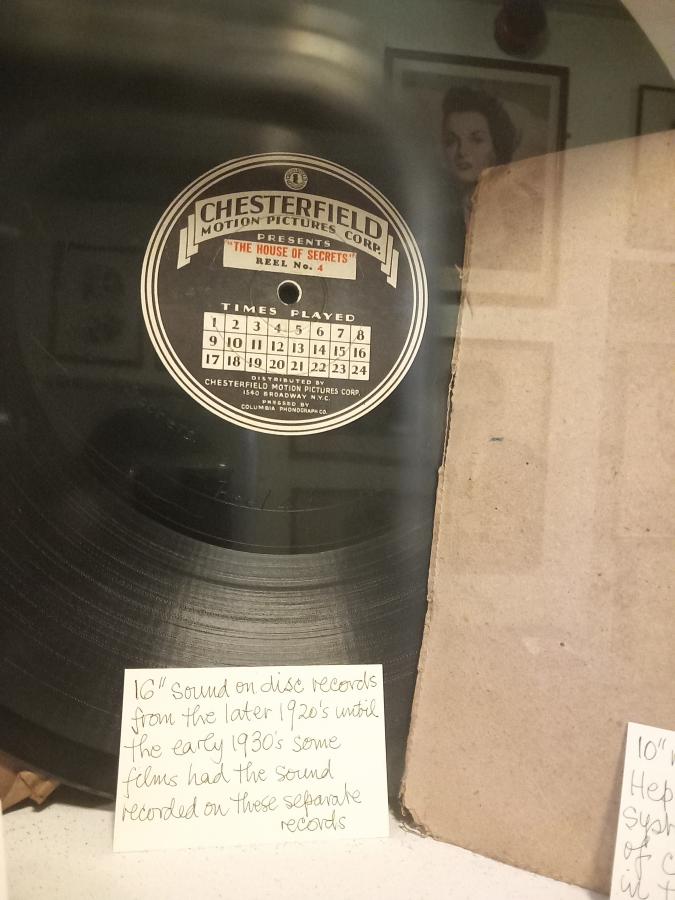 CHESTERFIELD
MOTION PICTURES CORP.
PRESENTS
"THE HOUSE OF SECRETS"
REEL No. 4
TIMES PLAYED
1 2 3 4 5 6 7 8
9 10 11 12 13 14 15 16
17 18 19 20 21 22 23 24
DISTRIBUTED BY
CHESTERFIELD MOTION PICTURES CORP.
1540 BROADWAY N.Y.C.
PRESSED BY
COLUMBIA PHONOGRAPH CO.
16" sound on disc records
from the later 1920's until
the early 1930's some
films had the sound
recorded on these separate
records
10"
Hep
Syst
of
in